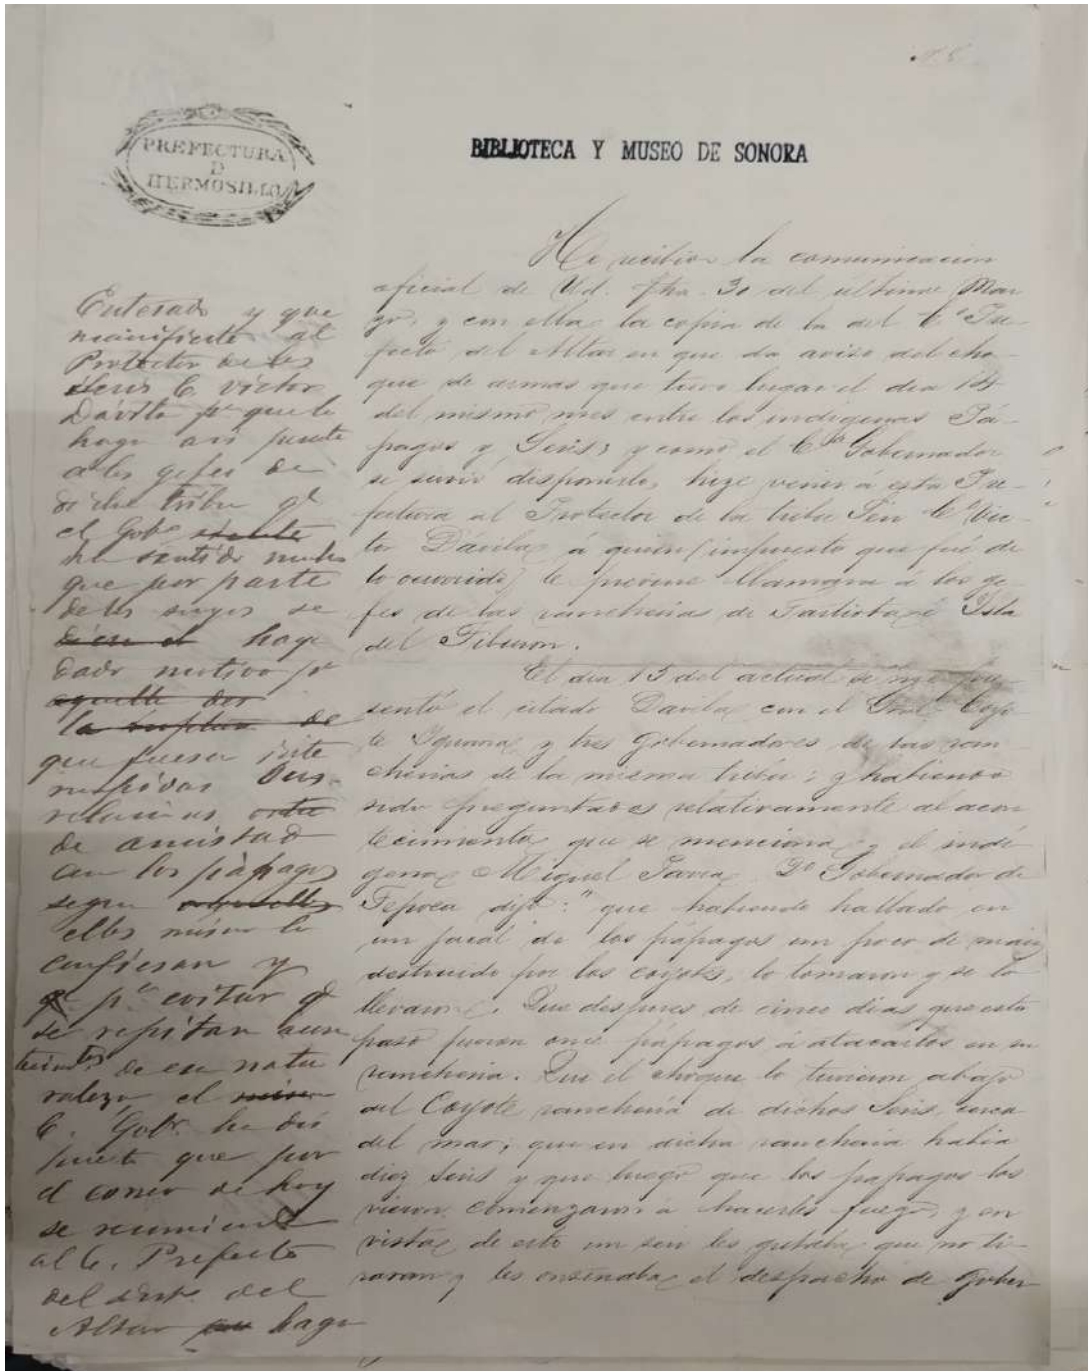 PREFECTURA
D
HERMOSILLO
BIBLIOTECA Y MUSEO DE SONORA
Enterado y que
manifieste al
Protector de los
Seris C. Victor
Dávila pa. que lo
haga así presente
a los gefes de
dicha tribu qe
el Gobo.
ha sentido mucho
que por parte
de los suyos se
haya
dado motivo pa
que fuesen
rumpidas las
relaciones
de amistad
con los pápagos
segun
ellos mismos lo
confiesan y
pa. evitar qe
se repitan acon
tecimtos. de esa natu
raleza el
C. Gobr. ha dis
puesto que por
el correo de hoy
se recomiende
al C. Prefecto
del Altar haga
He recibido la comunicacion
oficial de Ud. fha. 30 del ultimo Mar
zo, y con ella la copia de la del Co. Pre
fecto del Altar en que da aviso del cho-
que de armas que tuvo lugar el dia
del mismo mes entre los indígenas Pá-
pagos y Seris; y como el C. Gobernador
se sirvió disponerlo, hize venir á esta Pre-
fectura al Protector de la tribu Seri Co. Vic-
tor Dávila, á quien (impuesto que fué de
lo ocurrido) le previne llamara á los ge-
fes de las rancherias de Tastiota é Isla
del Tiburon.
El dia 15 del actual se me pre
sentó el citado Dávila con el Gral. Coyo
te Iguana, y tres Gobernadores de las ran
cherias de la misma tribu; y habiendo
sido preguntados relativamente al acon
tecimiento que se menciona, el indí
gena Miguel Gobernador de
Tepoca dijo: "que habiendo hallado en
un jacal de los pápagos un poco de maiz
destruido por los coyotes, lo tomaron y se lo
llevaron. Que despues de cinco dias que esto
paso fueron once pápagos á atacarlos en su
rancheria. Que el choque lo tuvieron abajo
del Coyote rancheria de dichos Seris, cerca
del mar; que en dicha rancheria habia
diez Seris y que luego que los papagos los
vieron, comenzaron á hacerles fuego, y en
vista de esto un seri les gritaba que no ti-
raran y les enseñaba el despacho de Gober